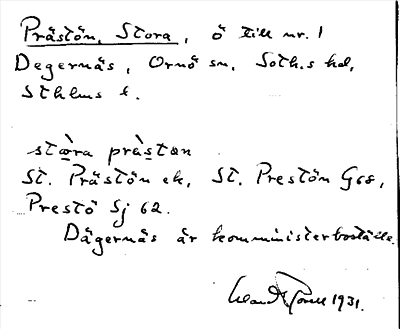 Prästön, Stora, ö till nr. 1
Degernäs, Ornö sn, Soth.s hd,
Sthlms l.
stòra prästɷn
St. Prästön ek, St. Prestön G68,
Prestö Sj 62.
Dägernäs är komministerboställe.
1931.